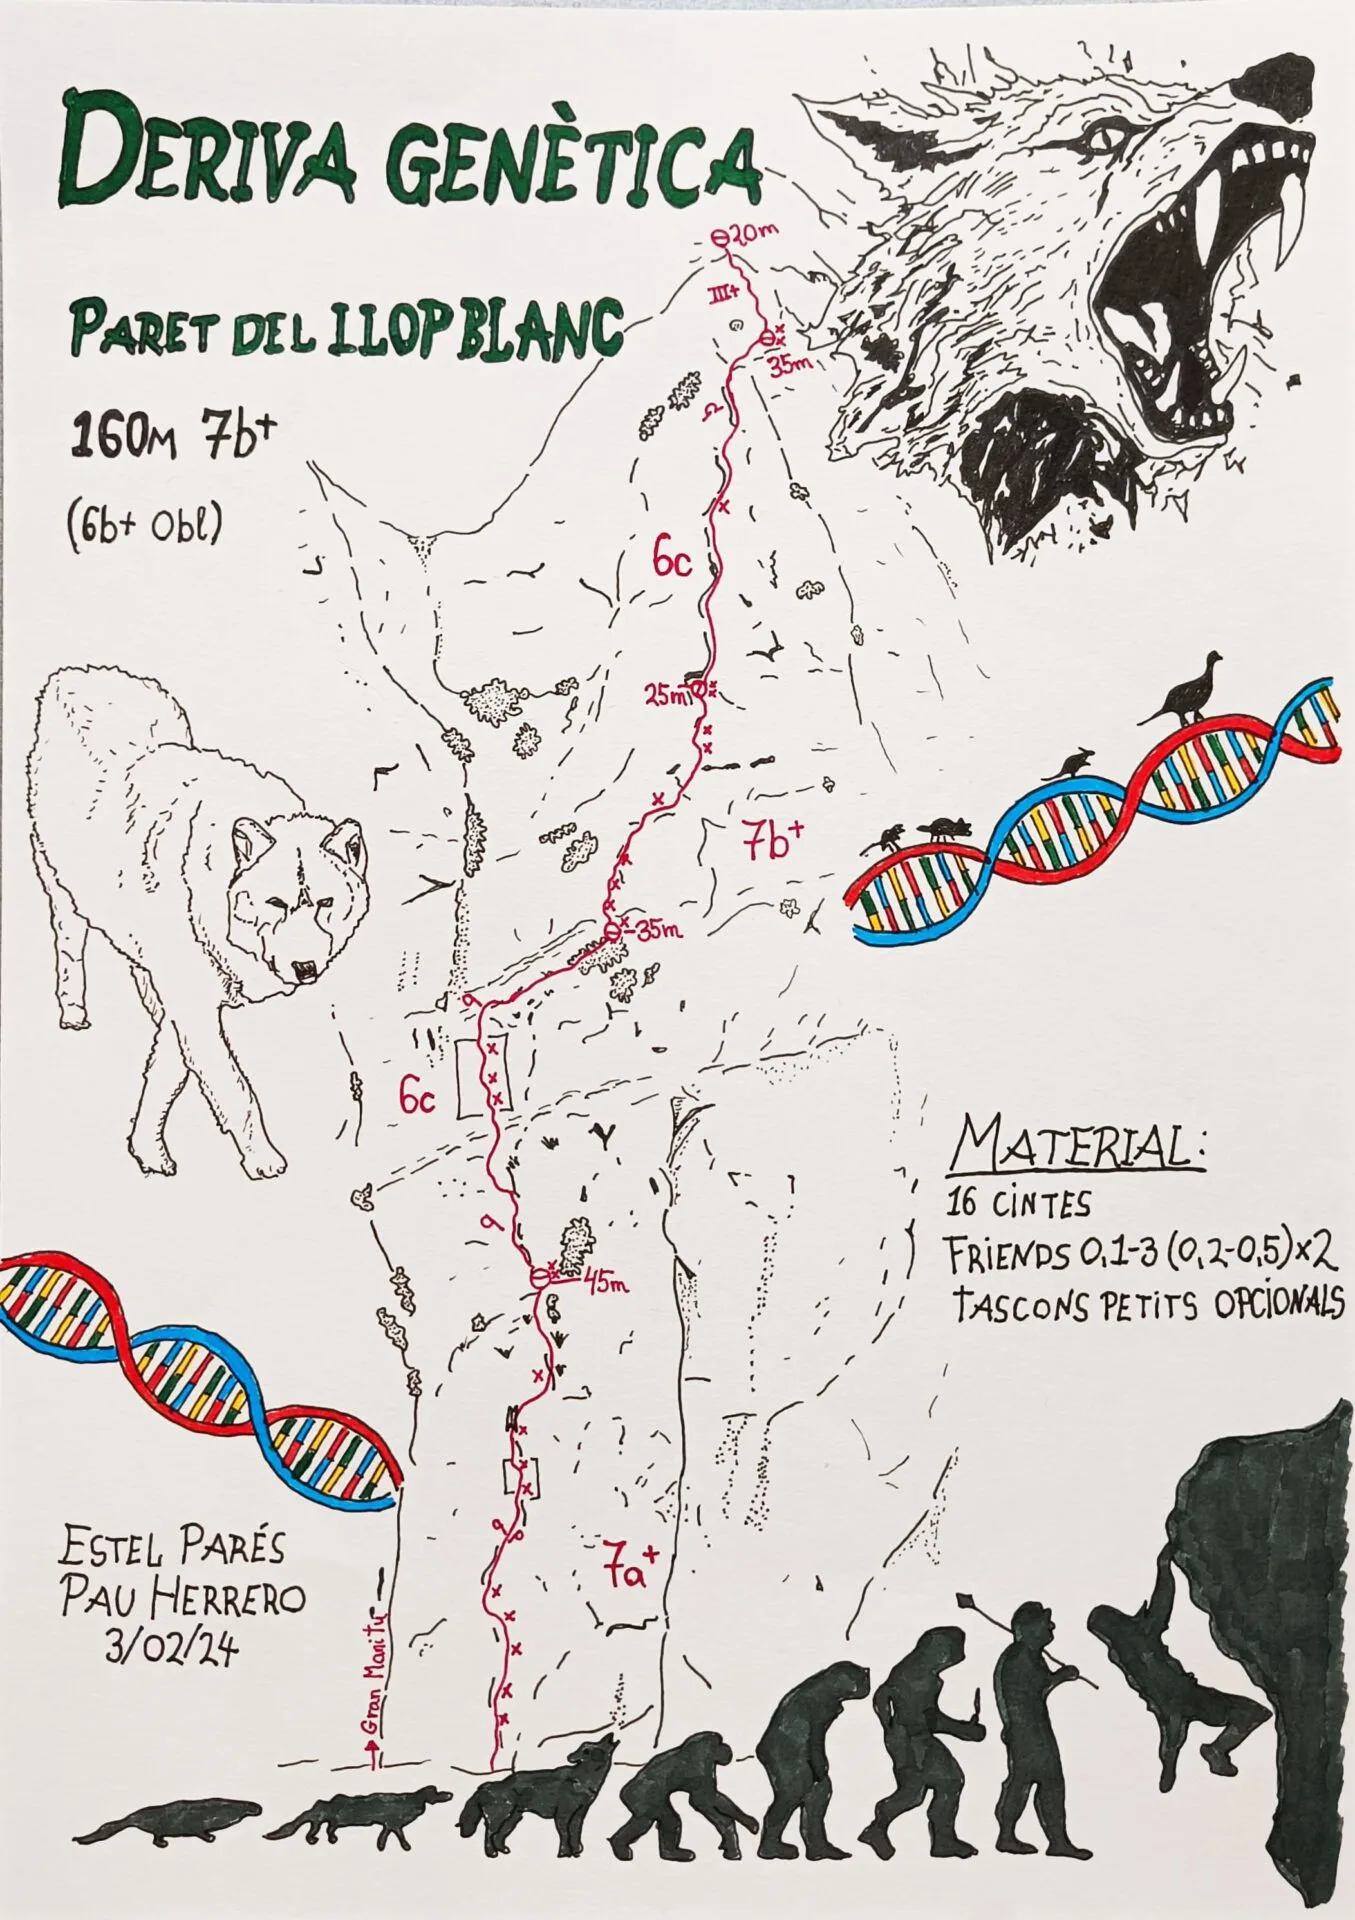 DERIVA GENÈTICA
PARET DEL LLOP BLANC
160M 7b+
(6b+ Obl)
20m
III+
35m
6c
25m
7b+
35m
6c
45m
7a+
Gran Manitú
MATERIAL:
16 CINTES
FRIENDS 0,1-3 (0,2-0,5)x2
TASCONS PETITS OPCIONALS
ESTEL PARÉS
PAU HERRERO
3/02/24